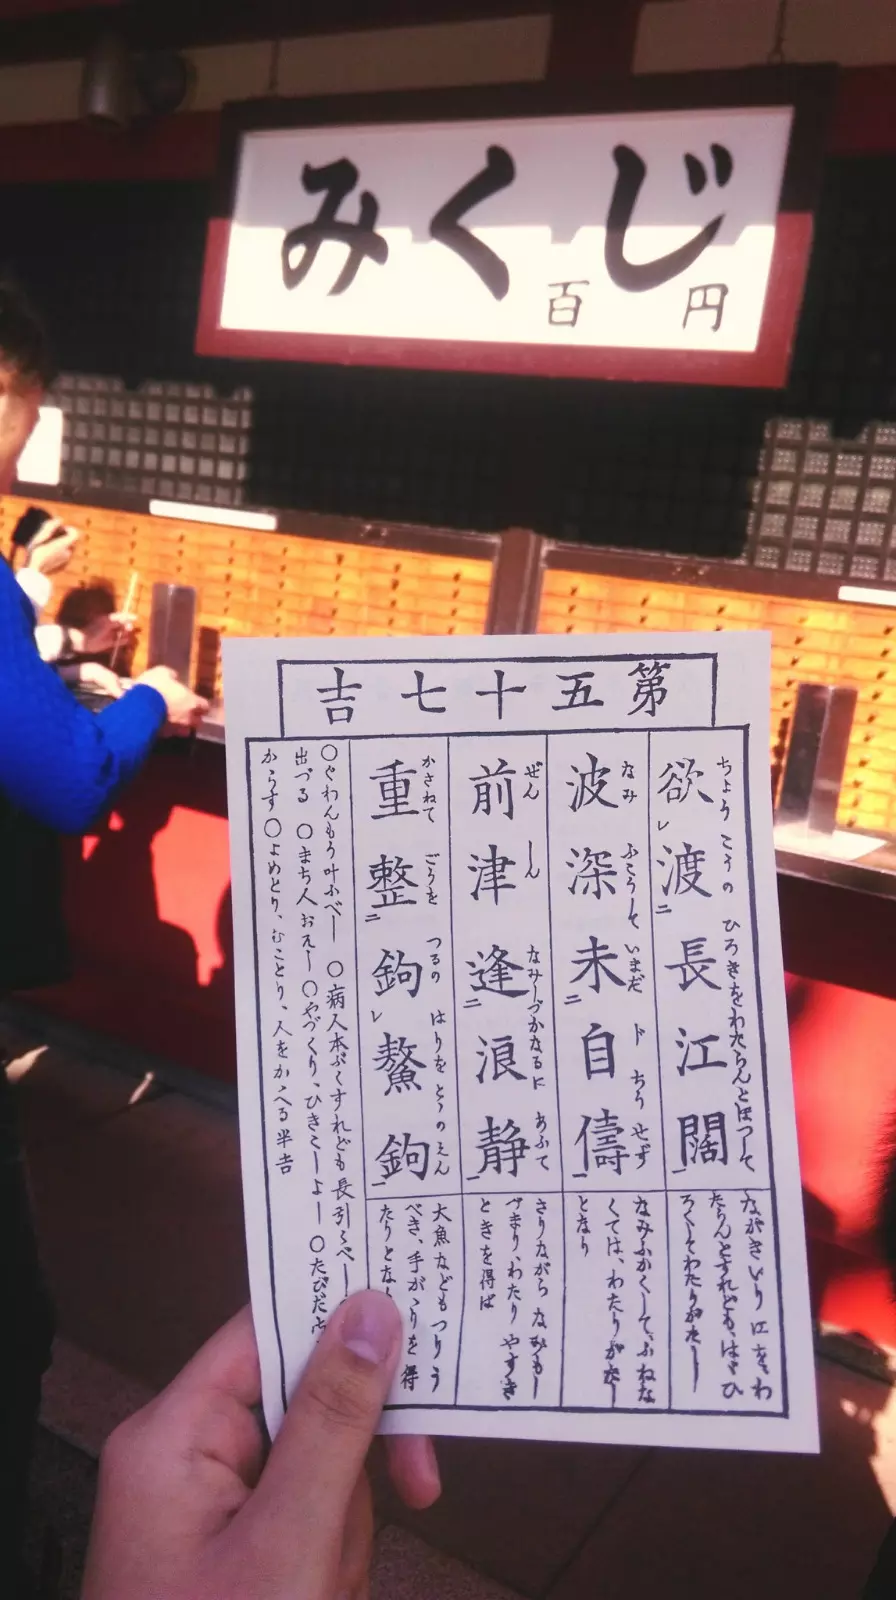 みくじ
百円
第五十七吉
欲渡長江闊
ちょうこうの ひろきをわたらんとほつして
波深未自儔
なみ ふこうして いまだ ドちうせず
前津逢浪静
ぜんしん なみしづかなるに あふて
重整鉤鰲鉤
かさねて ごうを つるの はりを とゝのえん
ながきいり江をわ
たらんとすれども、はゞひ
ろくしてわたりがたし
なみふかくして、ふねな
くては、わたりがたし
となり
さりながら なみもし
づまり、わたり やすき
ときを得ば
大魚などもつりう
べき、手がゝりを 得
たりとな
○くわんもう叶ふべし ○病人本ぷくすれども長引くべし
出づる ○まち人おそし ○やづくり、ひきこしよし ○たびだち
からず ○よめとり、むことり、人をかゝへる半吉